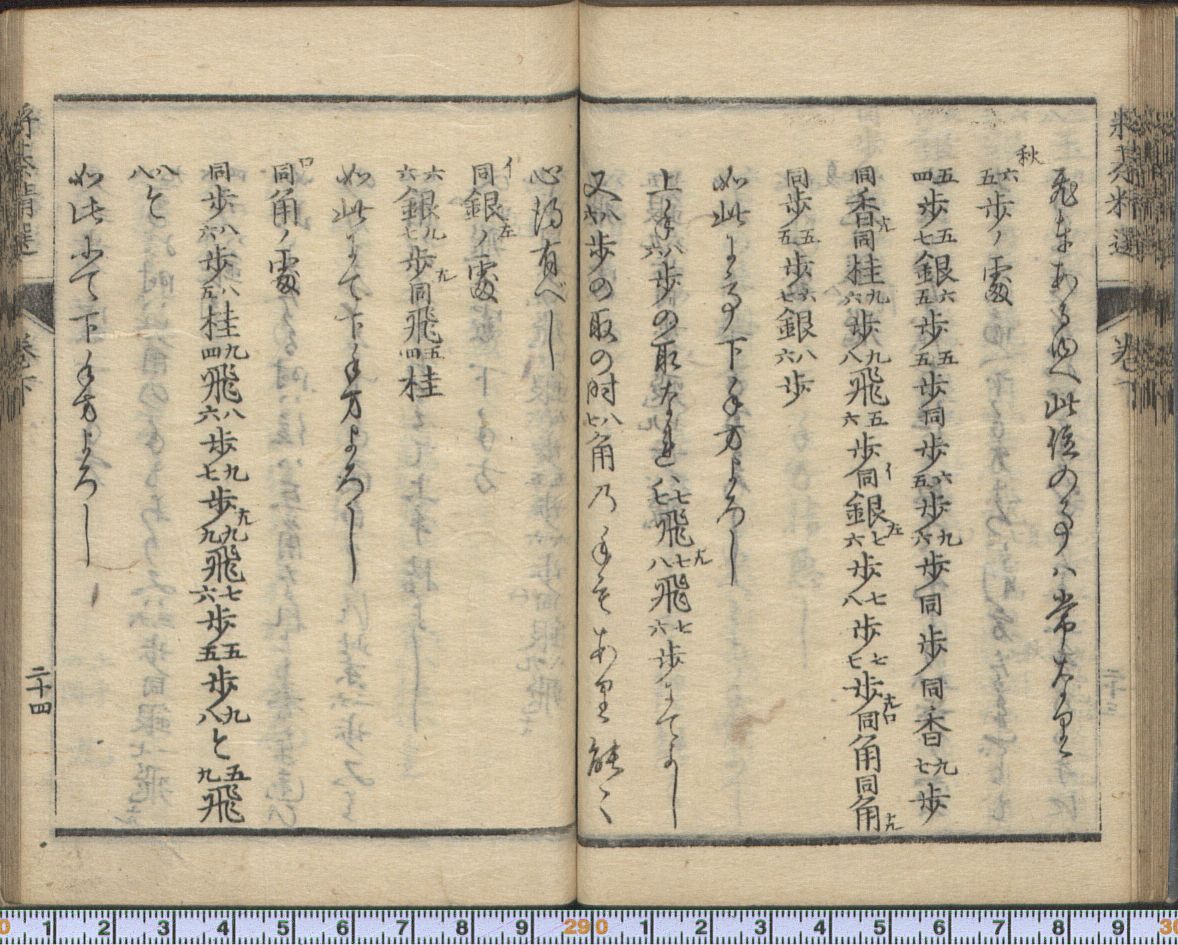 将棊精選 巻下
飛車あるゆへ此位の事ハ常なりと
秋
六五歩ノ處
五四歩五七銀六五歩五五歩同歩六五歩九六歩同歩同香九七歩
同香成同桂九六歩九八飛五六歩イ同銀左七六歩七八歩七七歩成ロ同角同角成
同歩五五歩六七銀八六歩
如此にてハ下手方よろし
上手八六歩の取
七七飛成七六歩にてよし
又八六歩の取の時八七角乃手もあり能々
心得有べし
イ同銀左ノ處
六六銀九七歩成同飛五四桂
如此にて下手方よろし
ロ同角ノ處
同歩八六歩八五桂九四飛八六歩九七歩成九九飛七六歩五五歩九八と五九飛
八八と
如此にて下手方よろし
将棊精選 巻下 二十四